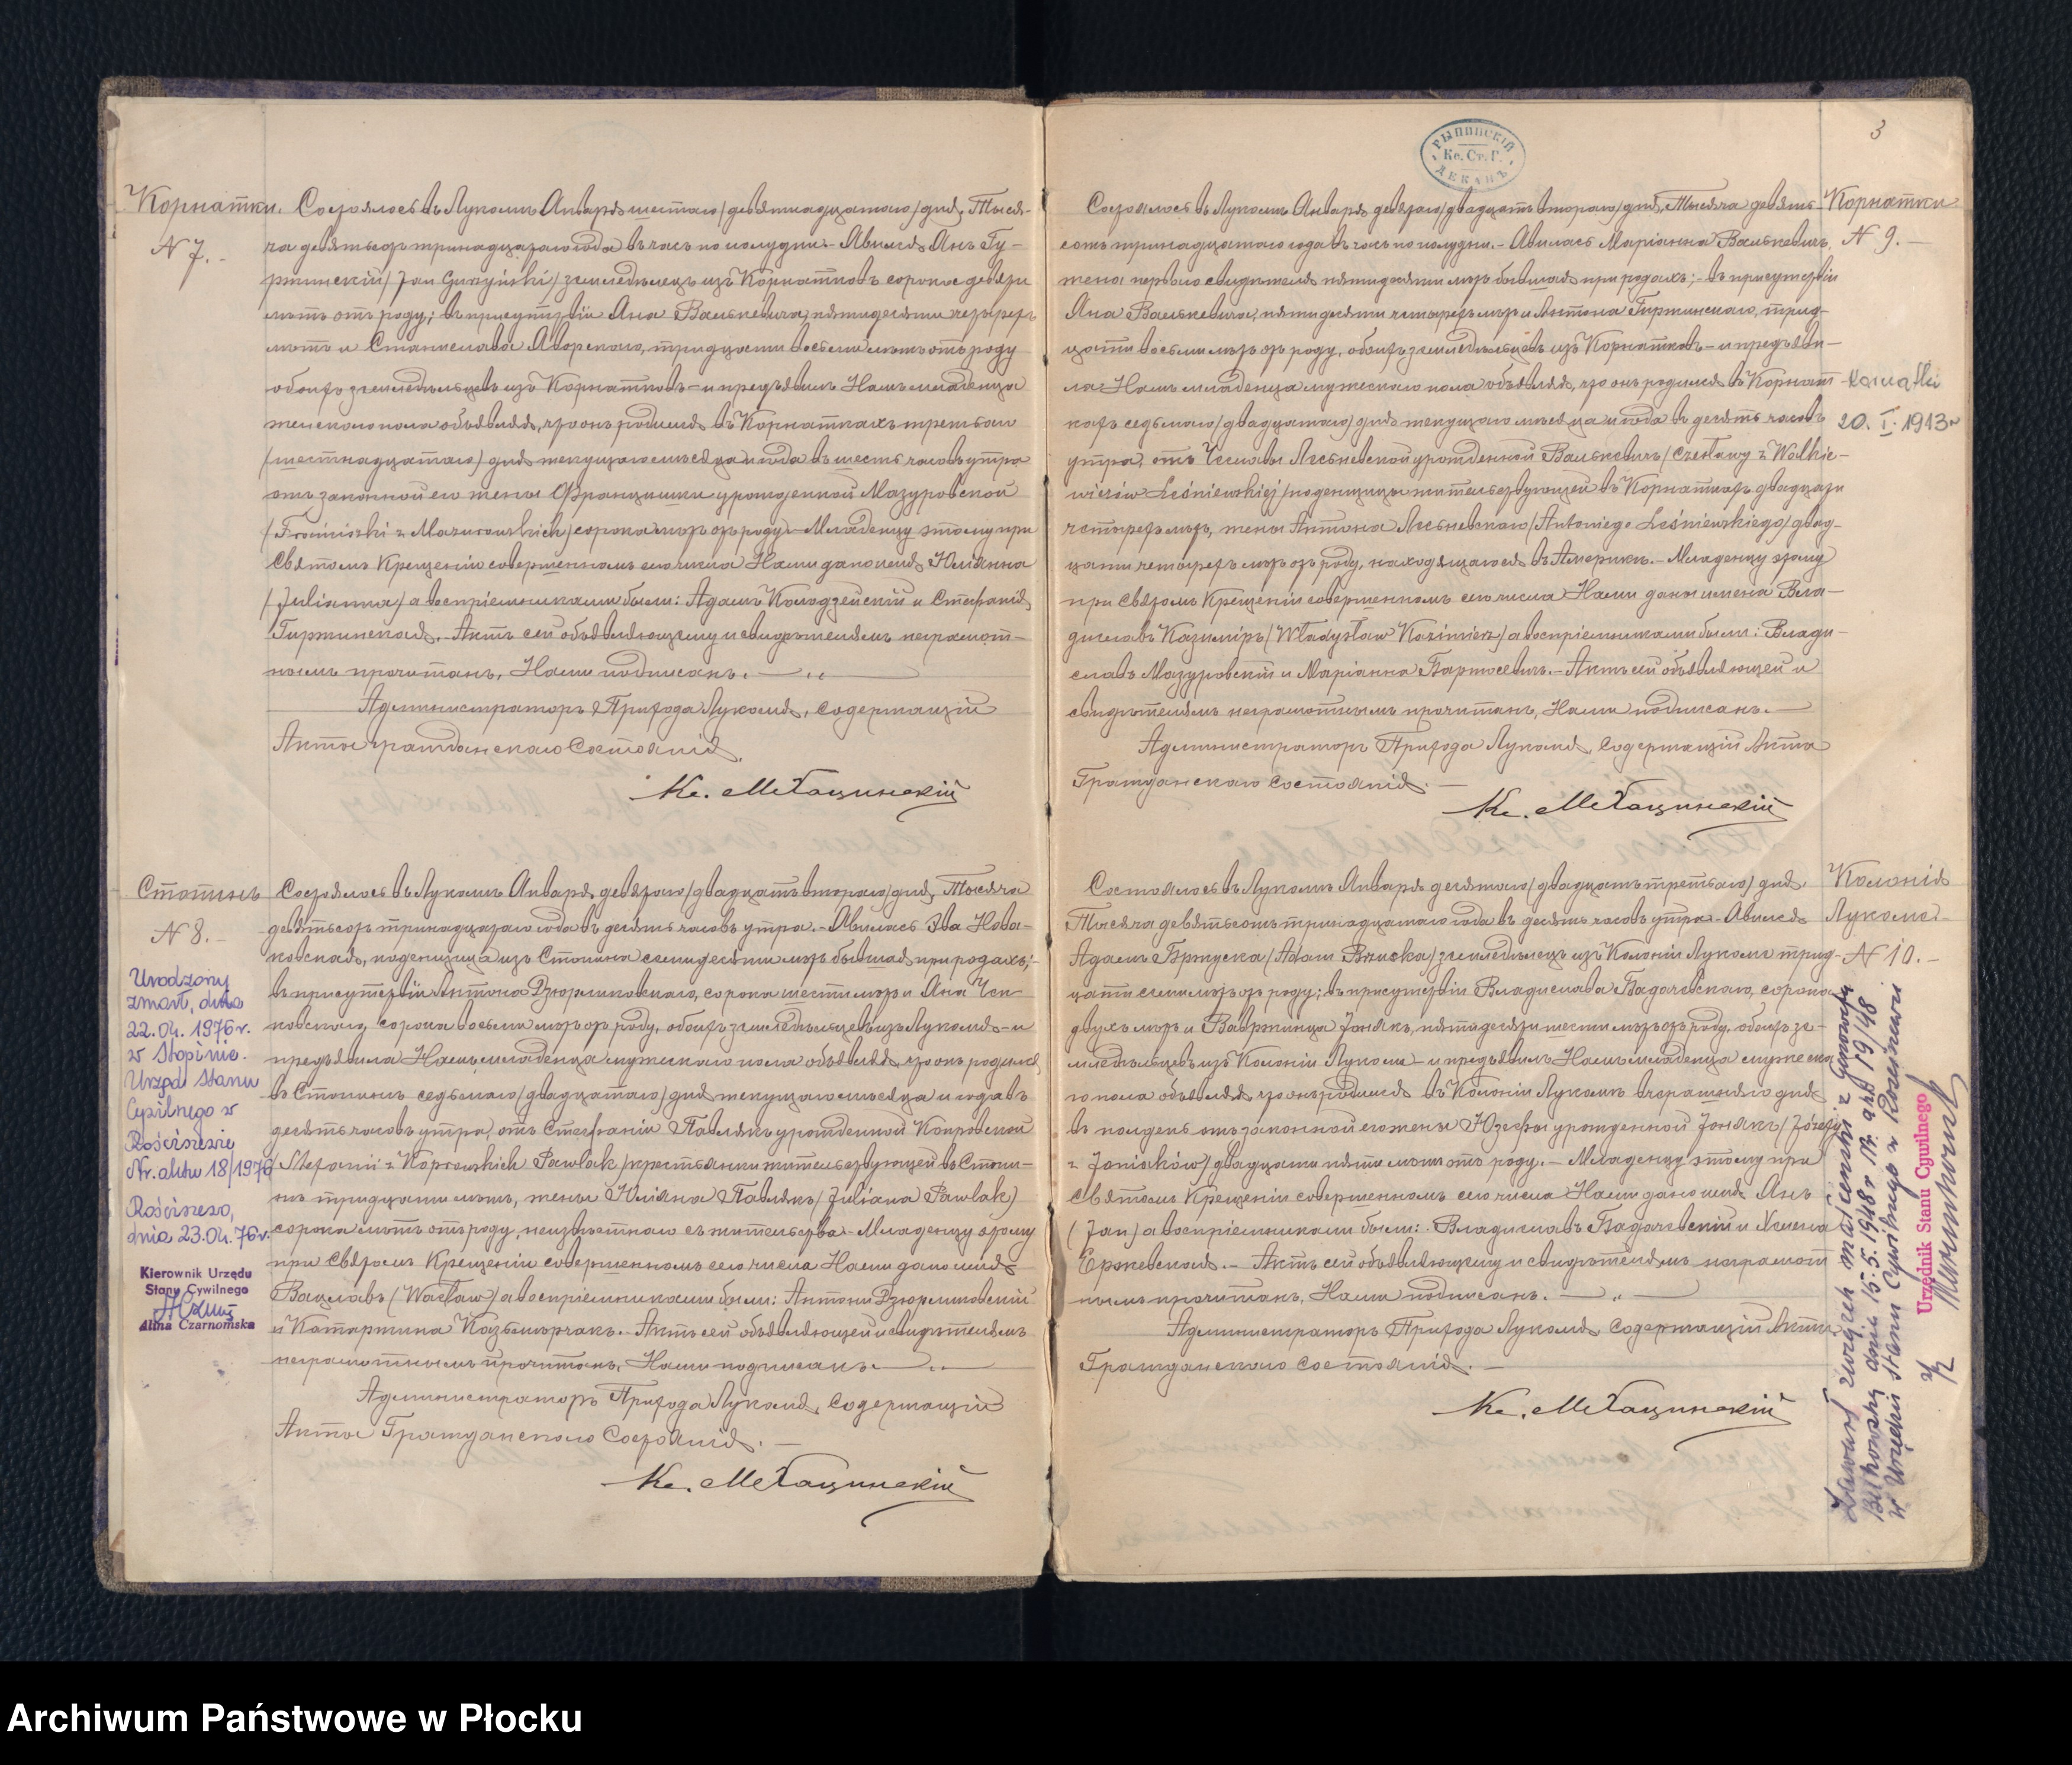 Корнатки.
N 7.
Состоялось въ Лукомѣ Января шестаго /девятнадцатаго/ дня, Тыся-
ча девятьсотъ тринадцатаго года въ часъ по полудни. – Явился Янъ Гу-
ржинскій / Jan Gurzyński / земледѣлецъ изъ Корнатковъ сорока девяти
лѣтъ отъ роду; въ присутствіи Яна Валькевича, пятидесяти четырехъ
лѣтъ и Станислава Яворскаго, тридцати восьми лѣтъ отъ роду
обоихъ земледѣльцевъ изъ Корнатковъ – и предъявилъ Намъ младенца
женскаго пола объявляя, что онъ родился въ Корнаткахъ третьяго
/шестнадцатаго/ дня текущаго мѣсяца и года въ шесть часовъ утра
отъ законной его жены Францишки урожденной Мазуровской
/Franciszki z Mazurowskich/ сорока лѣтъ отъ роду. – Младенцу этому при
Святомъ Крещеніи совершенномъ сего числа Нами дано имя Юліанна
/Julianna/ а воспріемниками были: Адамъ Колодзейскій и Стефанія
Гуржинская. – Актъ сей объявляющему и свидѣтелямъ неграмот-
нымъ прочитанъ, Нами подписанъ. –
Администраторъ Прихода Лукомя, содержащій
Акты гражданскаго Состоянія.
Кс. М. Хацинскій
Стопинъ
N 8. –
Состоялось въ Лукомѣ Января девятаго /двадцать втораго/ дня, Тысяча
девятьсотъ тринадцатаго года въ десять часовъ утра. – Явилась Эва Нова-
ковская, поденщица изъ Стопина семидесяти лѣтъ бывшая при родахъ; –
въ присутствіи Антона Дзюрликовскаго, сорока шести лѣтъ и Яна Чен-
ковскаго, сорока восьми лѣтъ отъ роду, обоихъ земледѣльцевъ изъ Лукомя – и
предъявила Намъ младенца мужескаго пола объявляя, что онъ родился
въ Стопинѣ седьмаго /двадцатаго/ дня текущаго мѣсяца и года въ
десять часовъ утра, отъ Стефаніи Павлякъ урожденной Копровской
/Stefanii z Koprowskich Pawlak/ крестьянки жительствующей въ Стопи-
нѣ тридцати лѣтъ, жены Юліана Павлякъ /Juliana Pawlak/
сорока лѣтъ отъ роду, неизвѣстнаго съ жительства. – Младенцу этому
при Святомъ Крещеніи совершенномъ сего числа Нами дано имя
Вацлавъ /Wacław/ а воспріемниками были: Антони Дзюрликовскій
и Катаржина Казьмѣрчакъ. – Актъ сей объявляющей и свидѣтелямъ
неграмотнымъ прочитанъ, Нами подписанъ. –
Администраторъ Прихода Лукомя, содержащій
Акты Гражданскаго Состоянія. –
Кс. М. Хацинскій
Urodzony
zmarł, dnia
22.04. 1976 r.
w Stopinie.
Urząd Stanu
Cywilnego w
Rościszewie
Nr. aktu 18/1976
Rościszewo,
dnia 23.04. 76 r.
Kierownik Urzędu
Stanu Cywilnego
Alina Czarnomska
3
РЫПИНСКІЙ
Кс. Ст. Г.
ДЕКАНЪ
Корнатки
N 9. –
Состоялось въ Лукомѣ Января девятаго /двадцать втораго/ дня, Тысяча девять-
сотъ тринадцатаго года въ часъ по полудни. – Явилась Маріанна Валькевичъ,
жена перваго свидѣтеля пятидесяти лѣтъ бывшая при родахъ; – въ присутствіи
Яна Валькевича, пятидесяти четырехъ лѣтъ и Антона Гуржинскаго, трид-
цати восьми лѣтъ отъ роду, обоихъ земледѣльцевъ изъ Корнатковъ – и предъяви-
ла Намъ младенца мужескаго пола объявляя, что онъ родился въ Корнат-
кахъ седьмаго /двадцатаго/ дня текущаго мѣсяца и года въ десять часовъ
утра, отъ Чеславы Лесьневской урожденной Валькевичъ /Czesławy z Walkie-
wiczów Leśniewskiej/ поденщицы жительствующей въ Корнаткахъ двадцати
четырехъ лѣтъ, жены Антона Лесьневскаго /Antoniego Leśniewskiego/ двад-
цати четырехъ лѣтъ отъ роду, находящагося въ Америкѣ. – Младенцу этому
при Святомъ Крещеніи совершенномъ сего числа Нами даны имена Вла-
диславъ Казиміръ /Władysław Kazimierz/ а воспріемниками были: Влади-
славъ Мазуровскій и Маріанна Бартосевичъ. – Актъ сей объявляющей и
свидѣтелямъ неграмотнымъ прочитанъ, Нами подписанъ. –
Администраторъ Прихода Лукомя, содержащій Акты
Гражданскаго Состоянія. –
Кс. М. Хацинскій
Kornatki
20. I. 1913 r
Колонія
Лукомь. –
N 10. –
Состоялось въ Лукомѣ Января десятаго /двадцать третьяго/ дня,
Тысяча девятьсотъ тринадцатаго года въ десять часовъ утра. – Явился
Адамъ Бржуска /Adam Brzuska/ земледѣлецъ изъ Колоніи Лукомь трид-
цати семи лѣтъ отъ роду; въ присутствіи Владислава Бадачевскаго, сорока
двухъ лѣтъ и Вавржинца Іонякъ, пятидесяти шести лѣтъ отъ роду, обоихъ зе-
мледѣльцевъ изъ Колоніи Лукомь – и предъявилъ Намъ младенца мужеска-
го пола объявляя, что онъ родился въ Колоніи Лукомь вчерашняго дня
въ полдень отъ законной его жены Юзефы урожденной Іонякъ /Józefy
z Joniaków/ двадцати пяти лѣтъ отъ роду. – Младенцу этому при
Святомъ Крещеніи совершенномъ сего числа Нами дано имя Янъ
/Jan/ а воспріемниками были: Владиславъ Бадачевскій и Хелена
Ержевская. – Актъ сей объявляющему и свидѣтелямъ неграмот-
нымъ прочитанъ, Нами подписанъ. –
Администраторъ Прихода Лукомя, содержащій Акты
Гражданскаго Состоянія. –
Кс. М. Хацинскій
Zawarł związek małżeński z Genowefą
Bukowską dnia 15.5.1948 r. nr. aktu 19/48
w Urzędzie Stanu Cywilnego w Rościszewie
Urzędnik Stanu Cywilnego
Archiwum Państwowe w Płocku